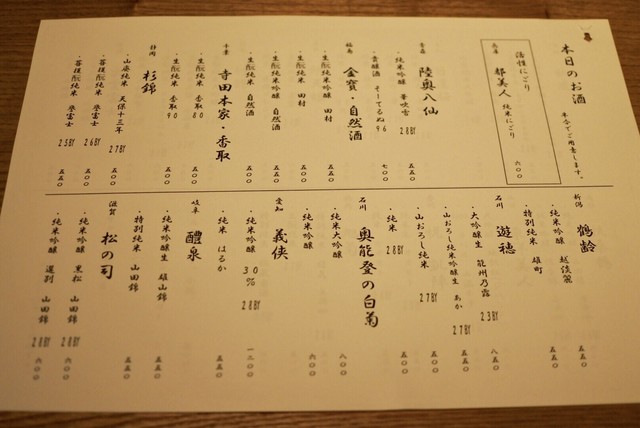 本日のお酒 半合でご用意します。
活性にごり
兵庫 都美人 純米にごり 六〇〇
青森 陸奥八仙
・純米吟醸 華吹雪 28BY 五五〇
・貴醸酒 そーてるぬ96 七〇〇
福島 金寳・自然酒
・生酛純米吟醸 田村 五五〇
・生酛純米 田村 五〇〇
・生酛純米吟醸 自然酒 五五〇
・生酛純米 自然酒 五〇〇
千葉 寺田本家・香取
・生酛純米 香取80 五〇〇
・生酛純米 香取90 五〇〇
静岡 杉錦
・山廃純米 天保十三年 27BY 五五〇
・菩提酛純米 26BY 五五〇
・菩提酛純米 25BY 五五〇
新潟 鶴齢 五五〇
・純米吟醸 越淡麗
・特別純米 雄町 五五〇
石川 遊穂
・大吟醸生 能州乃露 23BY 八五〇
・山おろし純米吟醸生 あか 27BY 五五〇
・山おろし純米 27BY 五五〇
・純米 28BY 五〇〇
石川 奥能登の白菊
・純米大吟醸 八〇〇
・純米吟醸 六〇〇
愛知 義侠
・純米吟醸 30% 28BY 一三〇〇
・純米 はるか 五五〇
岐阜 醴泉
・純米吟醸生 雄山錦 五五〇
・特別純米 山田錦 五五〇
滋賀 松の司
・純米吟醸 黒松 山田錦 28BY 六〇〇
・純米吟醸 山田錦 28BY 六〇〇